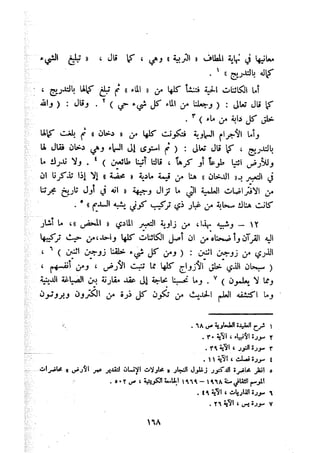 معانيها في نهاية المطاف « التربية » وهي ، كما قال ، « تبليغ الشيء
كماله بالتدريج » ١ .
أما الكائنات الحية فتنشأ كلها من « الماء » ثم تبلغ كمالها بالتدريج ،
كما قال تعالى : ( وجعلنا من الماء كل شيء حي ) ٢ . وقال : ( والله
خلق كل دابة من ماء ) ٣
وأما الأجرام السماوية فتكونت كلها من « دخان » ثم بلغت كمالها
بالتدريج ، كما قال تعالى : ( ثم استوى إلى السماء وهي دخان فقال لها
وللأرض ائتيا طوعاً أو كرهاً ، قالتا أتينا طائعين ) ٤ . ولا ندرك ما
في التعبير بـ « الدخان » هنا من قيمة مادية « محضة » إلا إذا تذكرنا ان
من الافتراضات العلمية التي ما تزال وجيهة « انه في أول تاريخ مجرتنا
كانت هناك سحابة من غبار ذي تركيب كوني يشبه السديم » ٥ .
١٢ – وشبيه بهذا ، من زاوية التعبير المادي « المحض » ، ما أشار
اليه القرآن وأوضحناه من ان أصل الكائنات كلها واحد ، من حيث تركيبها
الذري من زوجين اثنين : ( ومن كل شيء خلقنا زوجين اثنين ) ٦ ،
( سبحان الذي خلق الأزواج كلها مما تنبت الأرض ، ومن أنفسهم ،
ومما لا يعلمون ) ٧ . وما نحسبنا بحاجة إلى عقد مقارنة بين الصياغة الدينية
وما اكتشفه العلم الحديث من تكون كل ذرة من الكترون وبروتون
١ شرح العقيدة الطحاوية ص ٦٨ .
٢ سورة الأنبياء ، الآية ٣٠ .
٣ سورة النور ، الآية ٣٩ .
٤ سورة فصلت ، الآية ١١ .
٥ انظر محاضرة الدكتور زغلول النجار « محاولات الإنسان لتقدير عمر الأرض » محاضرات
الموسم الثقافي سنة ١٩٦٨ – ١٩٦٩ الجامعة الكويتية ، ص ٥٠٢ .
٦ سورة الذاريات ، الآية ٤٩ .
٧ سورة يس ، الآية ٣٦ .
١٦٨